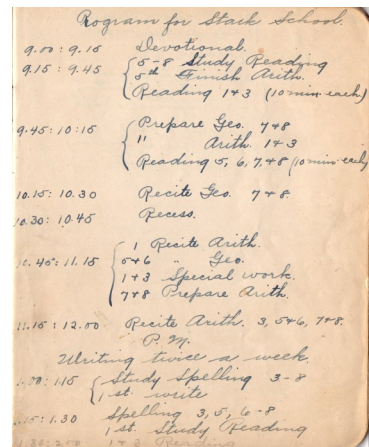 Program for Stark School.
9.00: 9.15 Devotional.
9.15: 9.45 5-8 Study Reading
5th Finish Arith.
Reading 1+3 (10 min. each)
9.45: 10:15 Prepare Geo. 7+8
" Arith. 1+3
Reading 5, 6, 7, +8 (10 min each)
10.15: 10.30 Recite Geo. 7+8.
10.30: 10.45 Recess.
10.45: 11.15 1 Recite Arith.
5+6 " Geo.
1+3 Special work.
7+8 Prepare Arith.
11.15: 12.00 Recite Arith. 3, 5+6, 7+8.
P.M.
Writing twice a week.
1.00: 1.15 Study Spelling 3-8
1st. write
1.15: 1.30 Spelling 3, 5, 6-8
1st. Study Reading
1.30: 2.00 1+3 Reading